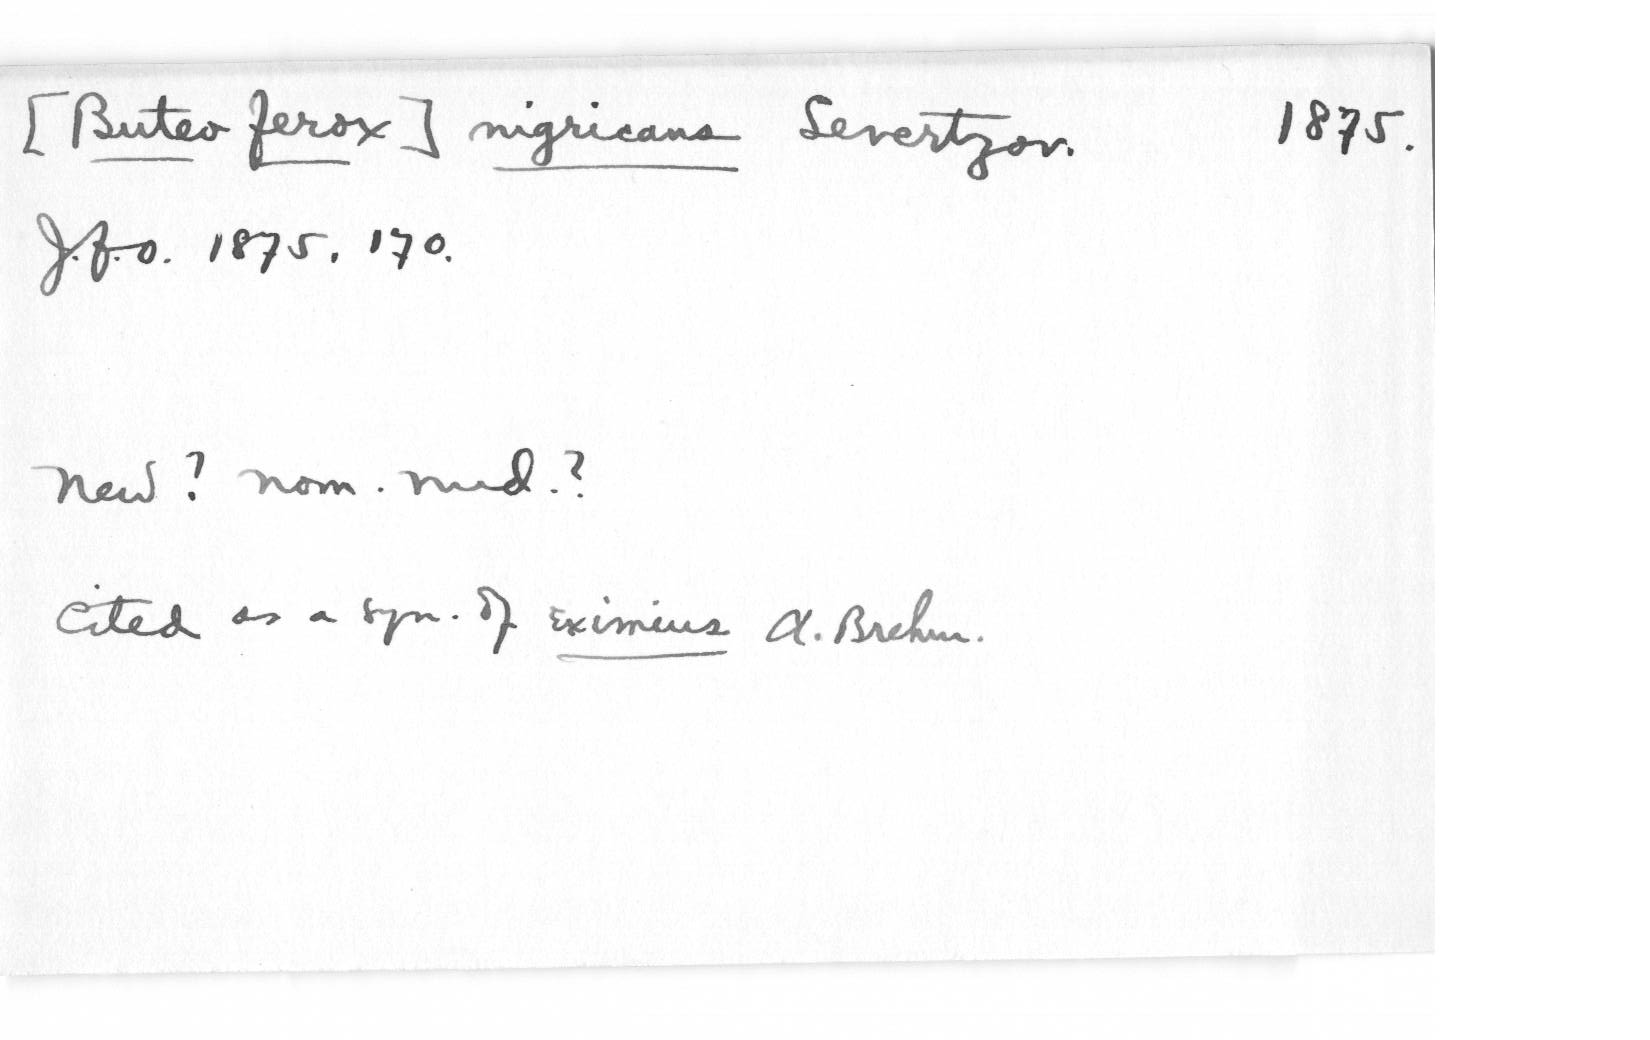 [Buteo ferox] nigricans Severtzov. 1875.
J.f.O. 1875, 170.
New? nom. nud.?
Cited as a syn. of eximius A. Brehm.